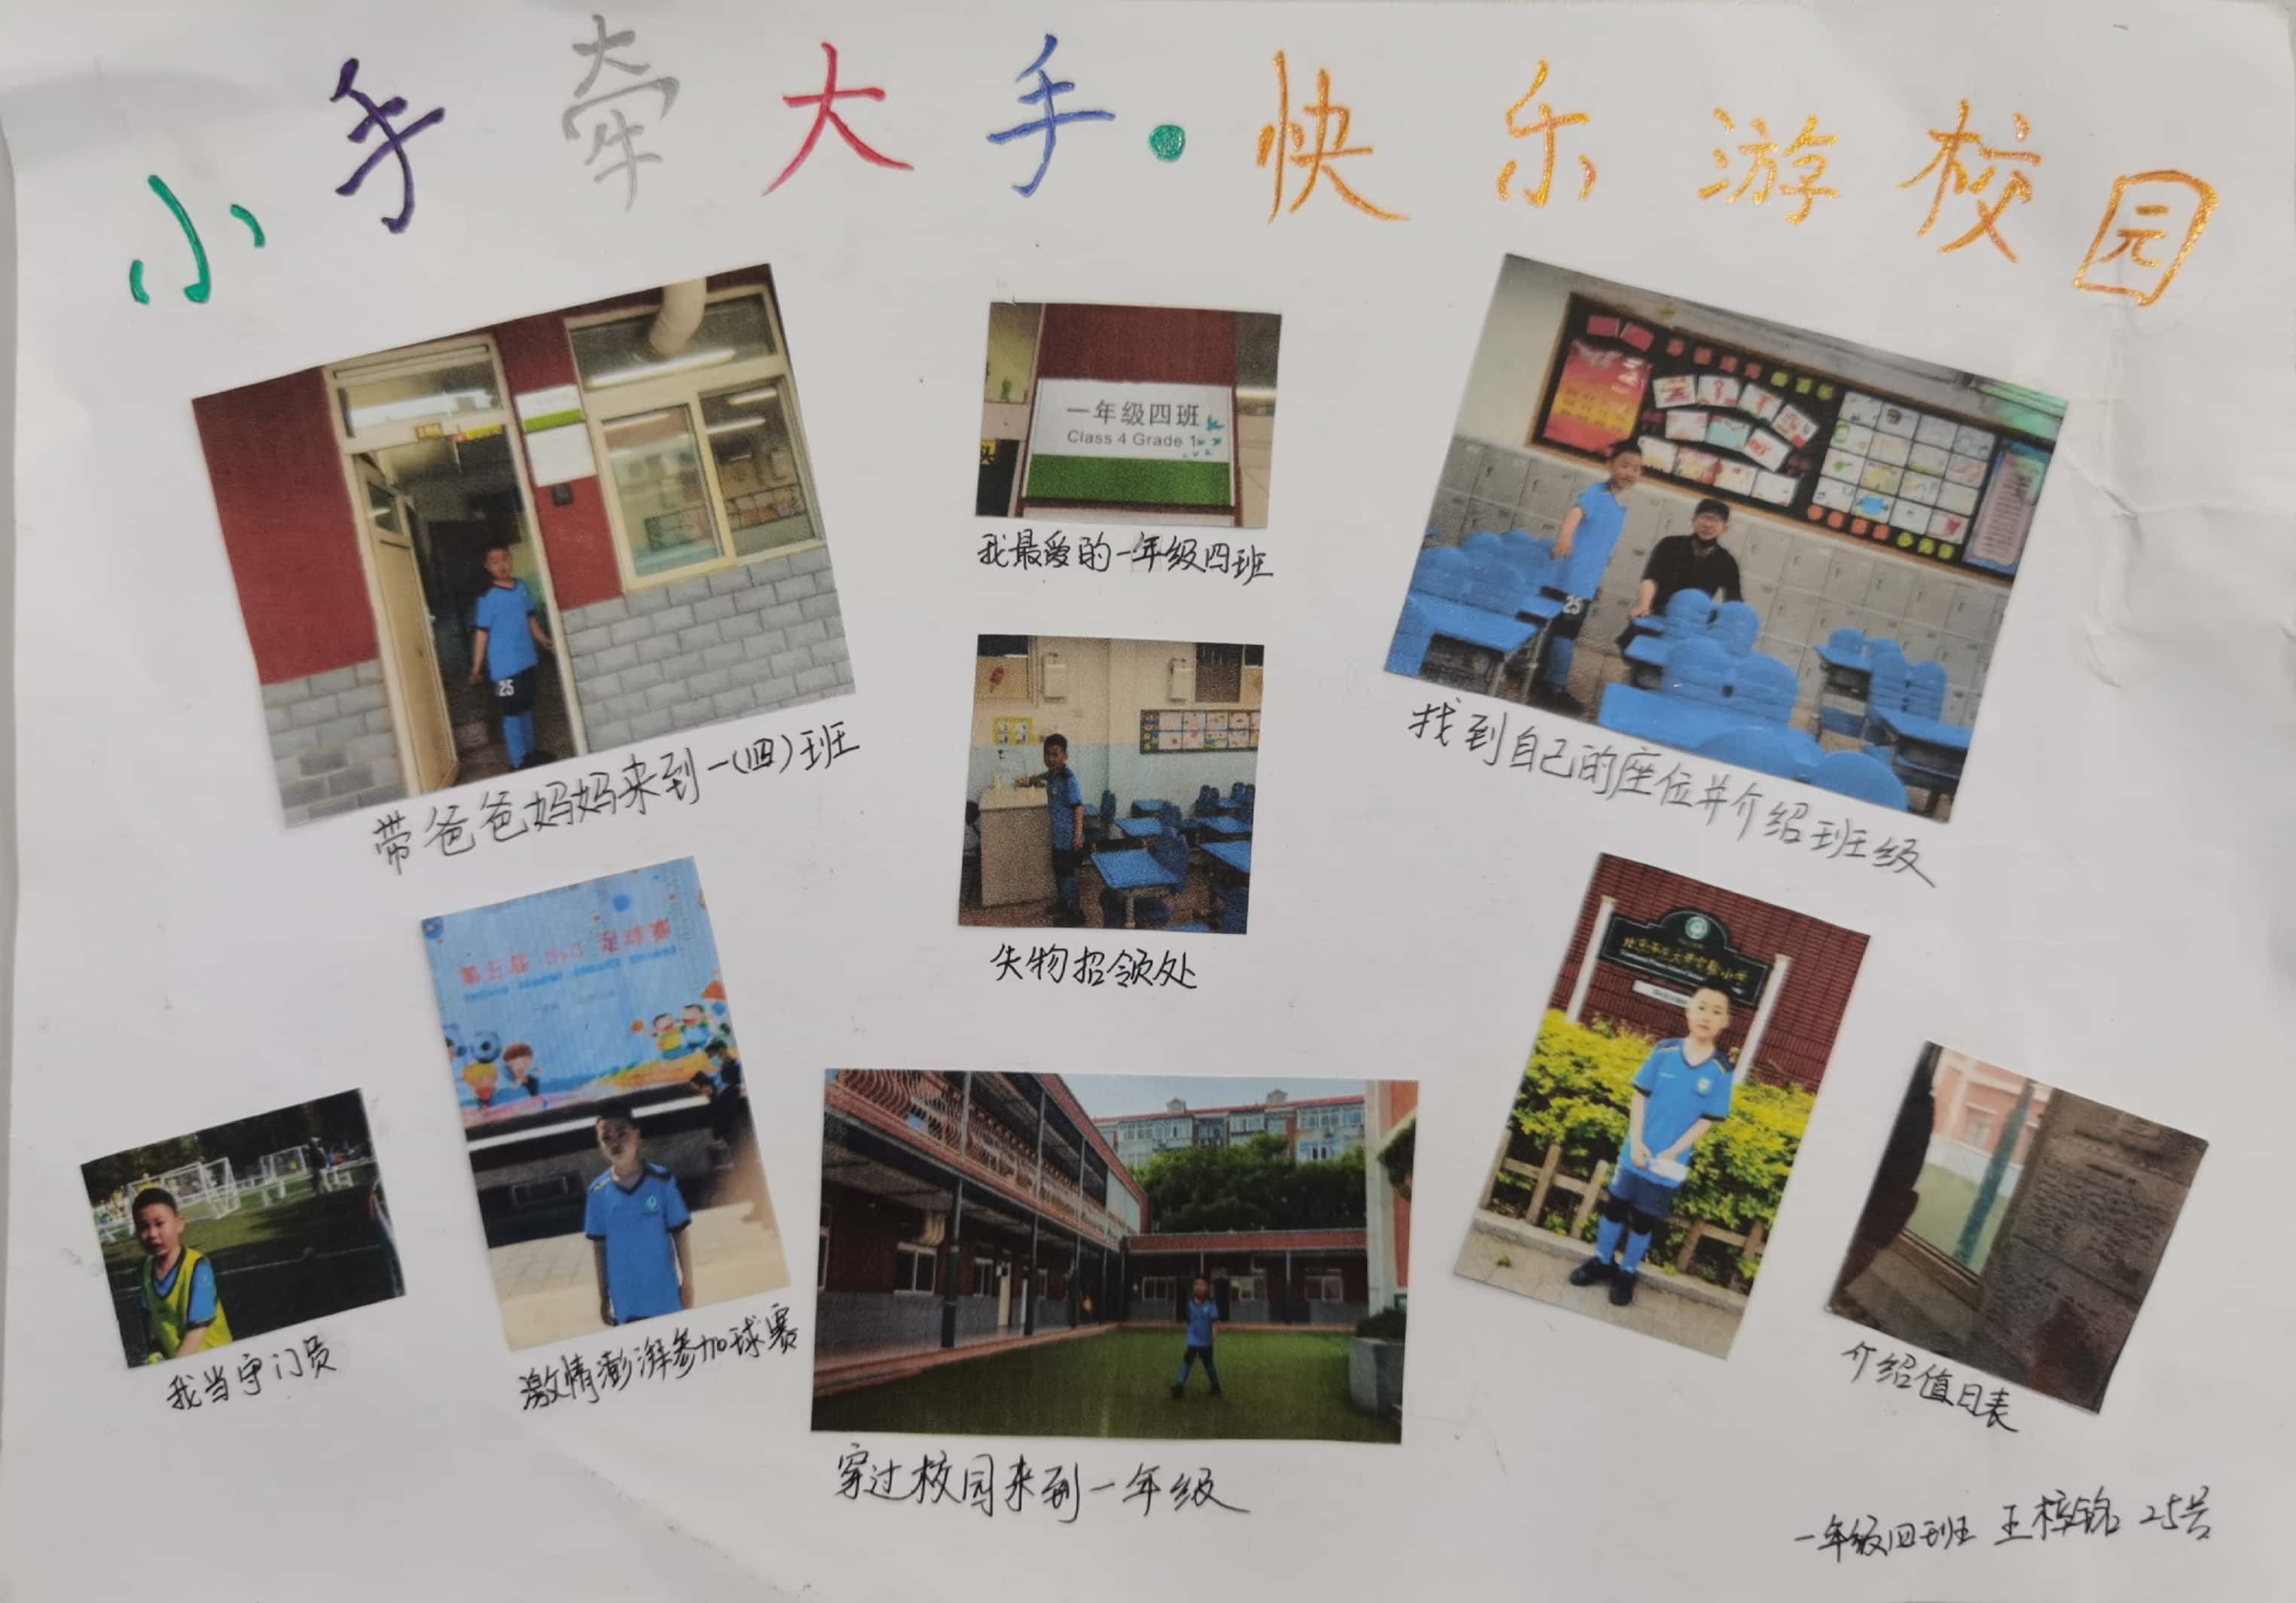 小手牵大手·快乐游校园
一年级四班
Class 4 Grade 1
我最爱的一年级四班
25
带爸爸妈妈来到一(四)班
25
找到自己的座位并介绍班级
失物招领处
第五届 3v3 足球赛
北京师范大学实验小学
我当守门员
激情澎湃参加球赛
穿过校园来到一年级
介绍值日表
一年级四班 王梓铭 25号